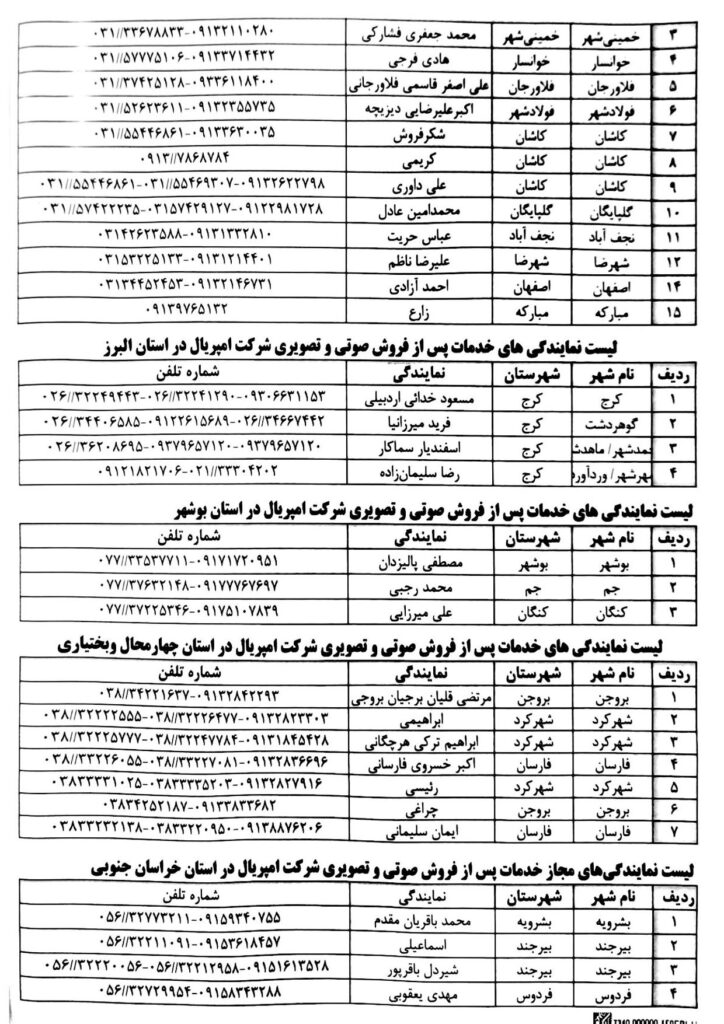 ۳ خمینی‌شهر خمینی‌شهر محمد جعفری فشارکی ۰۳۱//۳۳۶۷۸۸۳۳-۰۹۱۳۲۱۱۰۲۸۰
۴ خوانسار خوانسار هادی فرجی ۰۳۱//۵۷۷۷۵۱۰۶-۰۹۱۳۳۷۱۴۴۳۲
۵ فلاورجان فلاورجان علی اصغر قاسمی فلاورجانی ۰۳۱//۳۷۴۲۵۱۲۸-۰۹۳۳۶۱۱۸۴۰۰
۶ فولادشهر فولادشهر اکبرعلیرضایی دیزیچه ۰۳۱//۵۲۶۲۳۶۱۱-۰۹۱۳۲۳۵۵۷۳۵
۷ کاشان کاشان شکرفروش ۰۳۱//۵۵۴۴۶۸۶۱-۰۹۱۳۳۶۳۰۰۳۵
۸ کاشان کاشان کریمی ۰۹۱۳//۷۸۶۸۷۸۴
۹ کاشان کاشان علی داوری ۰۳۱//۵۵۴۴۶۸۶۱-۰۳۱//۵۵۴۶۹۳۰۷-۰۹۱۳۲۶۲۲۷۹۸
۱۰ گلپایگان گلپایگان محمدامین عادل ۰۳۱//۵۷۴۲۲۲۳۵-۰۳۱۵۷۴۲۹۱۲۷-۰۹۱۲۲۹۸۱۷۲۸
۱۱ نجف آباد نجف آباد عباس حریت ۰۳۱۴۲۶۲۳۵۸۸-۰۹۱۳۱۳۳۲۸۱۰
۱۲ شهرضا شهرضا علیرضا ناظم ۰۳۱۵۳۲۲۵۱۳۳-۰۹۱۳۱۲۱۴۴۰۱
۱۴ اصفهان اصفهان احمد آزادی ۰۳۱۳۴۴۵۲۴۵۳-۰۹۱۳۲۱۴۶۷۳۱
۱۵ مبارکه مبارکه زارع ۰۹۱۳۹۷۶۵۱۳۲
لیست نمایندگی های خدمات پس از فروش صوتی و تصویری شرکت امپریال در استان البرز
ردیف نام شهر شهرستان نمایندگی شماره تلفن
۱ کرج کرج مسعود خدائی اردبیلی ۰۲۶//۳۲۲۴۹۴۴۳-۰۲۶//۳۲۲۴۱۲۹۰-۰۹۳۰۶۶۳۱۱۵۳
۲ گوهردشت کرج فرید میرزانیا ۰۲۶//۳۴۴۰۶۵۸۵-۰۹۱۲۲۶۱۵۶۸۹-۰۲۶//۳۴۶۶۷۴۴۲
۳ حمدشهر/ ماهدش کرج اسفندیار سماکار ۰۲۶//۳۶۲۰۸۶۹۵-۰۹۳۷۹۶۵۷۱۲۰-۰۹۳۷۹۶۵۷۱۲۰
۴ هرشهر/ وردآور کرج رضا سلیمان‌زاده ۰۹۱۲۱۸۲۱۷۰۶-۰۲۱//۳۳۳۰۴۲۰۲
لیست نمایندگی های خدمات پس از فروش صوتی و تصویری شرکت امپریال در استان بوشهر
ردیف نام شهر شهرستان نمایندگی شماره تلفن
۱ بوشهر بوشهر مصطفی پالیزدان ۰۷۷//۳۳۵۳۷۷۱۱-۰۹۱۷۱۷۲۰۹۵۱
۲ جم جم محمد رجبی ۰۷۷//۳۷۶۳۲۱۴۸-۰۹۱۷۷۷۶۷۶۹۷
۳ کنگان کنگان علی میرزایی ۰۷۷//۳۷۲۲۵۳۴۶-۰۹۱۷۵۱۰۷۸۳۹
لیست نمایندگی های خدمات پس از فروش صوتی و تصویری شرکت امپریال در استان چهارمحال وبختیاری
ردیف نام شهر شهرستان نمایندگی شماره تلفن
۱ بروجن بروجن مرتضی قلیان برجیان بروجی ۰۳۸//۳۴۲۲۱۶۳۷-۰۹۱۳۲۸۴۲۲۹۳
۲ شهرکرد شهرکرد ابراهیمی ۰۳۸//۳۲۲۲۲۵۵۵-۰۳۸//۳۲۲۲۶۴۷۷-۰۹۱۳۲۸۲۳۳۰۳
۳ شهرکرد شهرکرد ابراهیم ترکی هرچگانی ۰۳۸//۳۲۲۲۵۷۷۷-۰۳۸//۳۲۲۴۷۷۸۴-۰۹۱۳۱۸۴۵۴۲۸
۴ فارسان فارسان اکبر خسروی فارسانی ۰۳۸//۳۳۲۲۶۰۵۵-۰۳۸//۳۳۲۲۷۰۸۱-۰۹۱۳۲۸۳۶۶۹۶
۵ شهرکرد شهرکرد رئیسی ۰۳۸۳۳۳۳۱۰۲۵-۰۳۸۳۳۳۳۵۲۰۳-۰۹۱۳۲۸۲۷۹۱۶
۶ بروجن بروجن چراغی ۰۳۸۳۴۲۵۲۱۸۷-۰۹۱۳۳۸۳۳۶۸۲
۷ فارسان فارسان ایمان سلیمانی ۰۳۸۳۳۲۳۲۱۳۸-۰۳۸۳۳۲۲۰۹۵۰-۰۹۱۳۸۸۷۶۲۰۶
لیست نمایندگی‌های مجاز خدمات پس از فروش صوتی و تصویری شرکت امپریال در استان خراسان جنوبی
ردیف نام شهر شهرستان نمایندگی شماره تلفن
۱ بشرویه بشرویه محمد باقریان مقدم ۰۵۶//۳۲۷۷۳۲۱۱-۰۹۱۵۹۳۴۰۷۵۵
۲ بیرجند بیرجند اسماعیلی ۰۵۶//۳۲۲۱۱۰۹۱-۰۹۱۵۳۶۱۸۴۵۷
۳ بیرجند بیرجند شیردل باقرپور ۰۵۶//۳۲۲۲۰۰۵۶-۰۵۶//۳۲۲۱۲۹۵۸-۰۹۱۵۱۶۱۳۵۲۸
۴ فردوس فردوس مهدی یعقوبی ۰۵۶//۳۲۷۲۹۹۵۴-۰۹۱۵۸۳۴۳۲۸۸